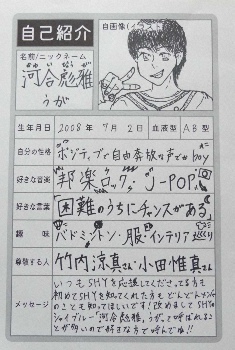 自己紹介
自画像(イラスト)
名前/ニックネーム
河合彪雅
うが
生年月日 2008年 7月2日 血液型 AB型
自分の性格 ポジティブで自由奔放な声でか boy
好きな音楽 邦楽ロック、J-POP
好きな言葉 困難のうちにチャンスがある
趣味 バドミントン・服・インテリア
尊敬する人 竹内涼真さん 小田惟真さん
メッセージ
いつもSHYを応援してくださってる方も
初めてSHYを知ってくれた方も どんどんメンバー
のことも知ってほしいです! 改めましてSHYの
ジョイブルー「河合彪雅」うが、って呼ばれるこ
とが多いので好きな方で呼んでね!!